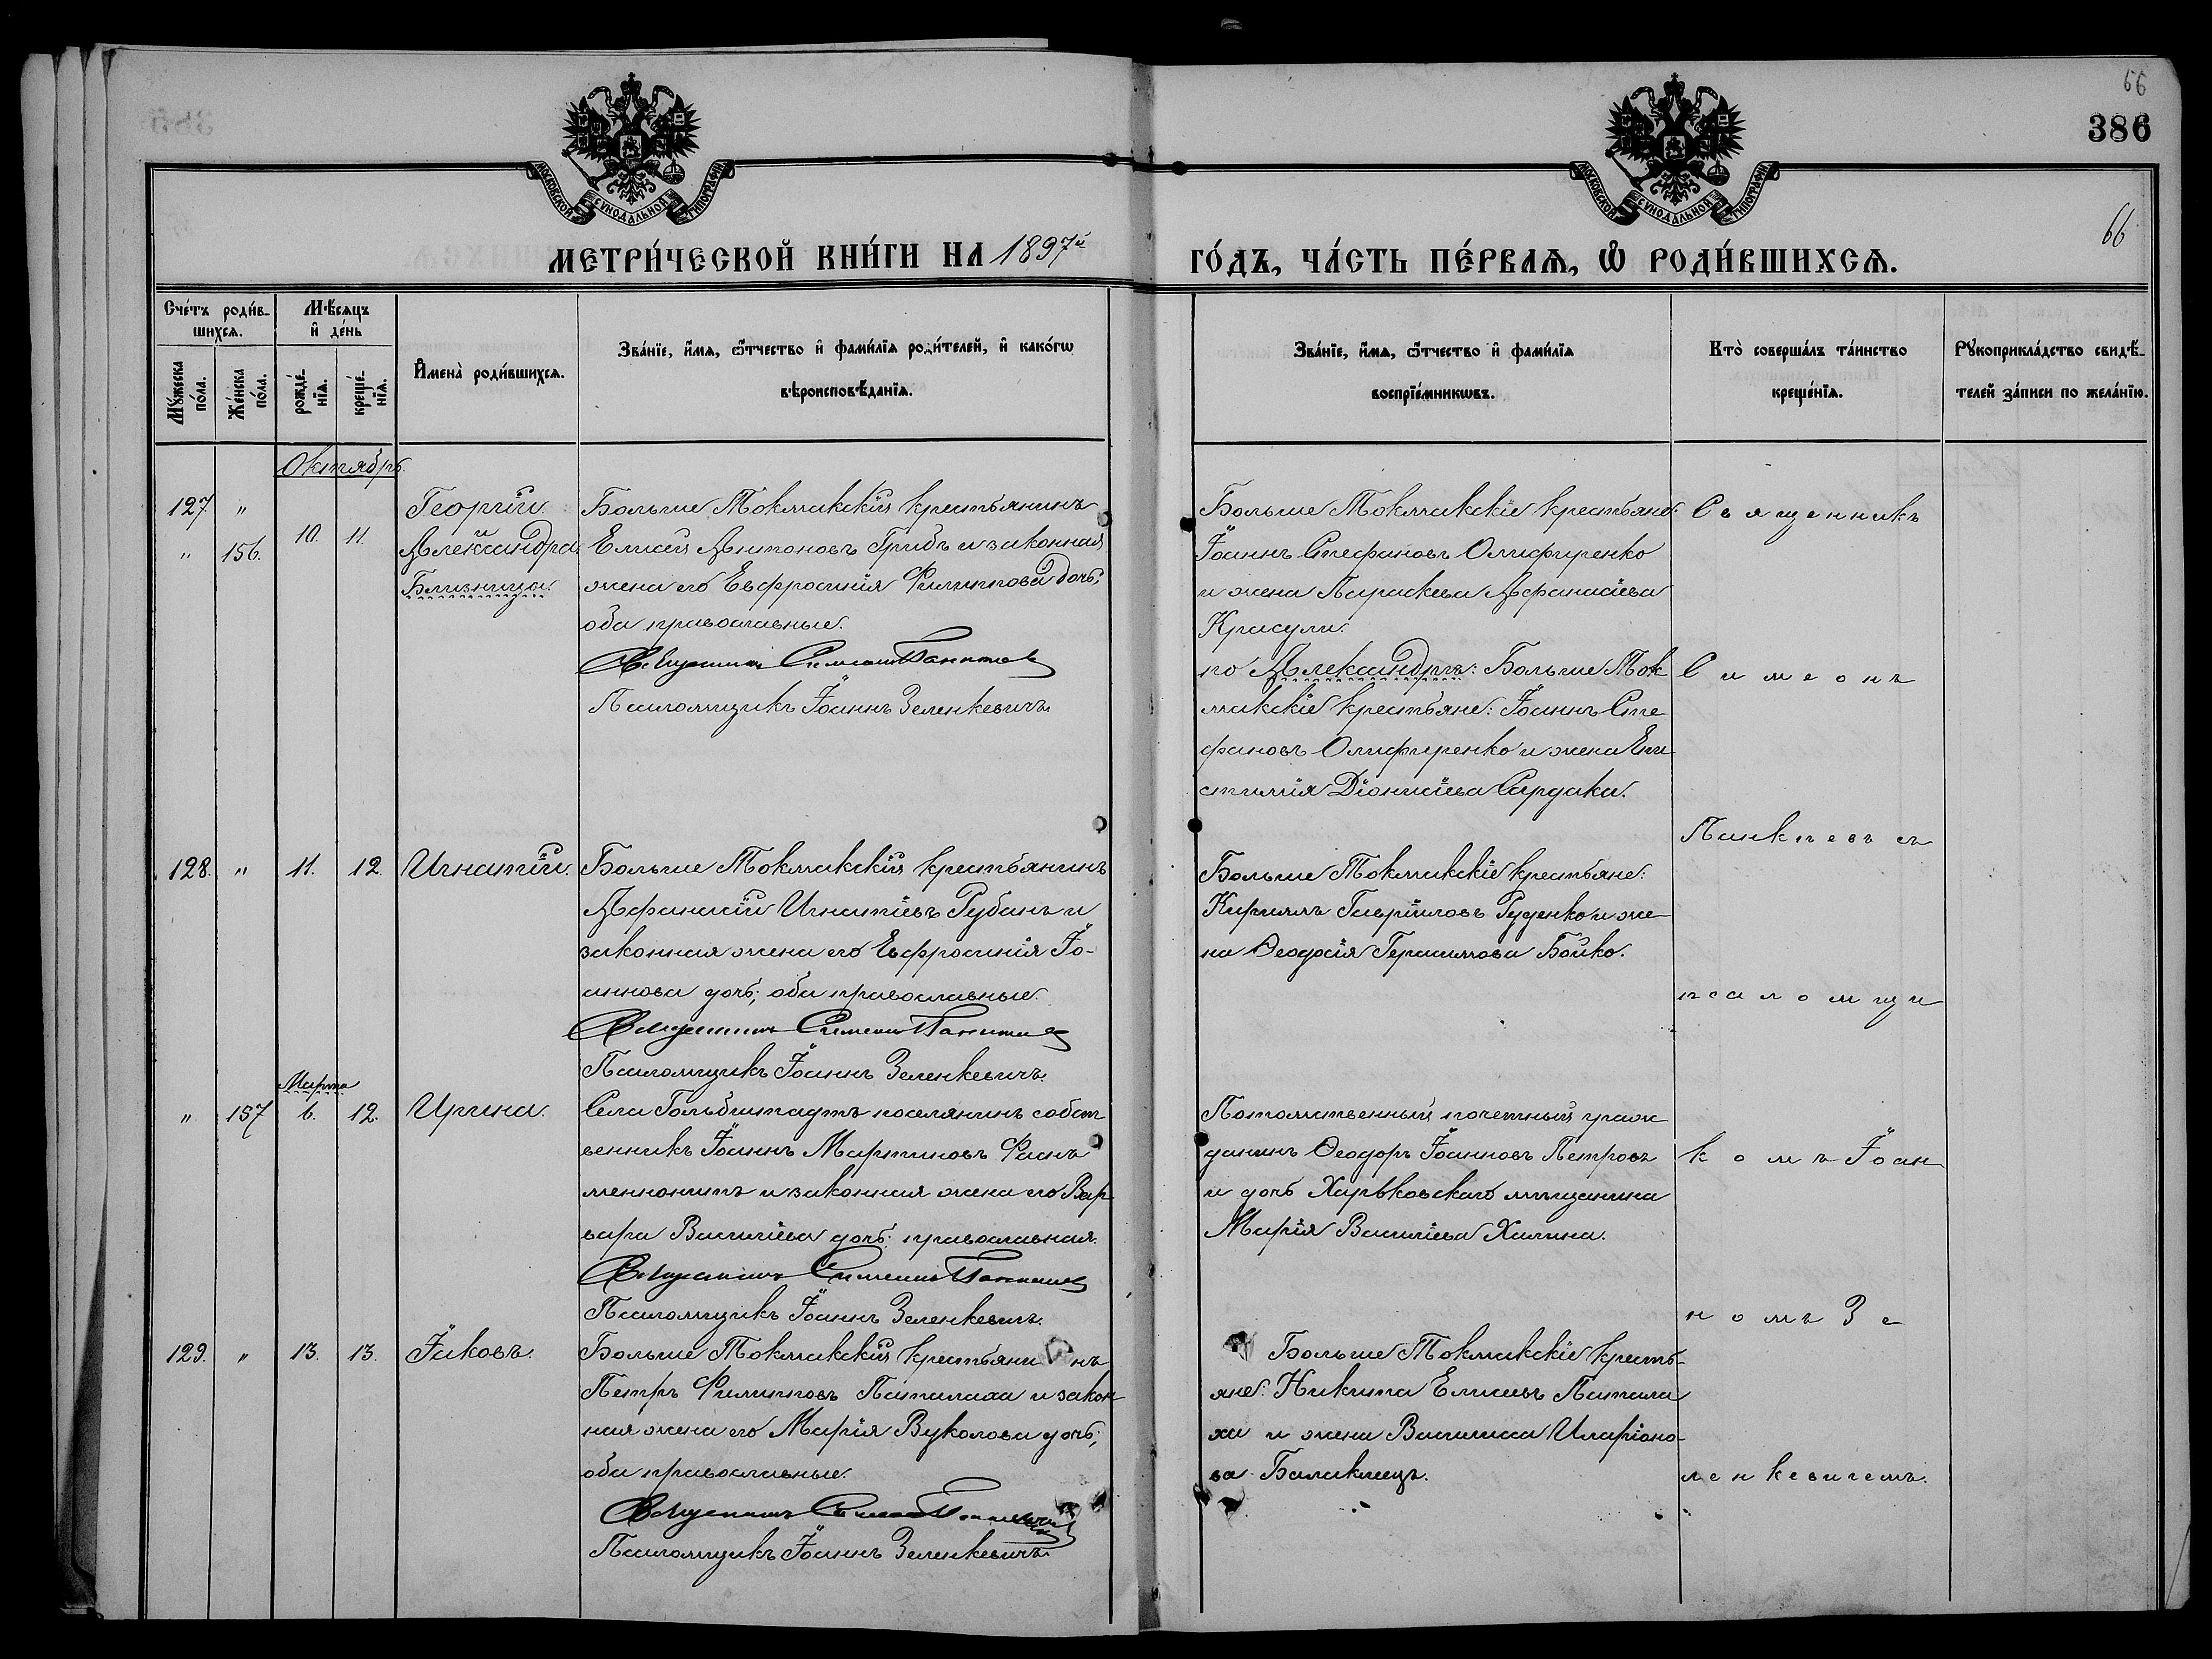 66
386
66
МОСКОВСКОЙ СѴНОДАЛЬНОЙ ТИПОГРАФІИ
МОСКОВСКОЙ СѴНОДАЛЬНОЙ ТИПОГРАФІИ
МЕТРИ́ЧЕСКОЙ КНИ́ГИ НА 1897й
ГО́ДЪ, ЧА́СТЬ ПЕ́РВАѦ, Ѽ РОДИ́ВШИХСѦ.
Сче́тъ роди́в-
шихсѧ.
Мꙋ́жеска
по́ла.
Же́нска
по́ла.
Мѣ́сѧцъ
и҆ де́нь
рожде́-
нїѧ.
креще́-
нїѧ.
И҆мена̀ роди́вшихсѧ.
Зва́нїе, и҆́мѧ, ѻ҆́тчество и҆ фами́лїѧ роди́телей, и҆ како́гѡ
вѣроисповѣ́данїѧ.
Зва́нїе, и҆́мѧ, ѻ҆́тчество и҆ фами́лїѧ
воспрїе́мникѡвъ.
Кто̀ соверша́лъ та́инство
креще́нїѧ.
Рꙋкоприкла́дство свидѣ́-
телей за́писи по жела́нїю.
Октябрь.
127. " 10. 11. Георгій
" 156. и
Александра
Близнецы.
Больше Токмакскій крестьянинъ
Елисей Антоновъ Грибъ и законная
жена его Евфросинія Филиппова дочь;
оба православные.
Священникъ Симеонъ
Псаломщикъ Іоаннъ Зеленкевичъ.
Больше Токмакскіе крестьяне:
Іоаннъ Стефановъ Олифиренко
и жена Параскева Афанасіева
Красули.
по Александрѣ: Больше Ток
макскіе крестьяне: Іоаннъ Сте
фановъ Олифиренко и жена Епи
стимія Діонисіева Сардака.
128. " 11. 12. Игнатій.
Больше Токмакскій крестьянинъ
Афанасій Игнатіевъ Рубанъ и
законная жена его Евфросинія Іо-
аннова дочь; оба православные.
Священникъ Симеонъ
Псаломщикъ Іоаннъ Зеленкевичъ.
Больше Токмакскіе крестьяне:
Кириллъ Гавріиловъ Руденко и же
на Ѳеодосія Герасимова Бойко.
Марта
" 157 6. 12. Ирина.
Села Гольбштадтъ поселянинъ собст
венникъ Іоаннъ Мартиновъ
меннонитъ и законная жена его Вар
вара Василіева дочь; православная.
Священникъ Симеонъ
Псаломщикъ Іоаннъ Зеленкевичъ.
Потомственный почетный граж
данинъ Ѳеодоръ Іоанновъ Петровъ
и дочь Харьковскаго мѣщанина
Марія Василіева Халина.
129. " 13. 13. Іаковъ.
Больше Токмакскій крестьяни нъ
Петръ Филипповъ Паталаха и закон
ная жена его Марія Вуколова дочь;
оба православные.
Священникъ Симеонъ
Псаломщикъ Іоаннъ Зеленкевичъ.
Больше Токмакскіе кресть-
яне: Никита Елисіевъ Патала
ха и жена Василисса Иларіоно-
ва Балаклецъ.
Священникъ
Симеонъ
съ
псаломщи
комъ Іоан
номъ Зе
ленкевичемъ.